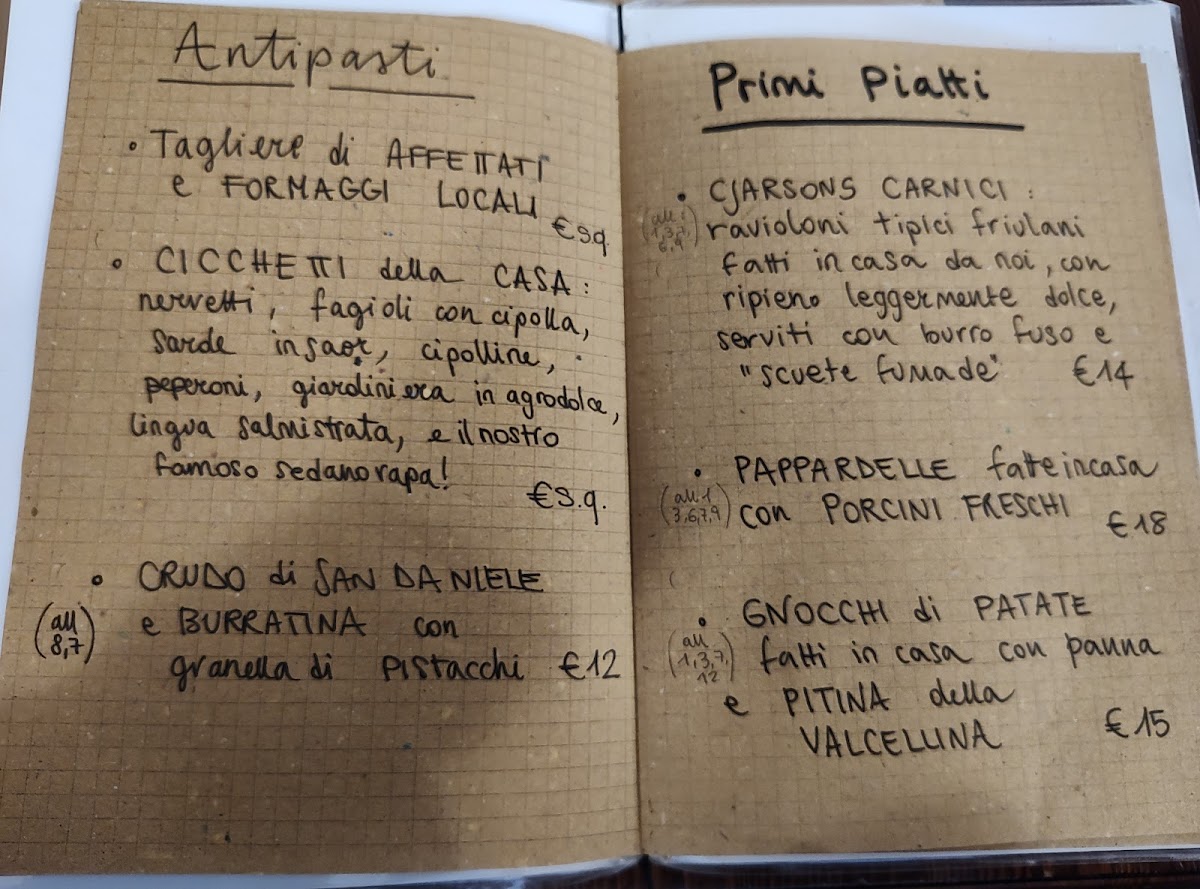 Antipasti
• Tagliere di AFFETTATI
e FORMAGGI LOCALI
€ s.q.
• CICCHETTI della CASA:
nervetti, fagioli con cipolla,
sarde in saor, cipolline,
peperoni, giardiniera in agrodolce,
lingua salmistrata, e il nostro
famoso sedano rapa!
€ s.q.
• CRUDO di SAN DANIELE
(all 8,7)
e BURRATINA con
granella di PISTACCHI €12
Primi Piatti
• CJARSONS CARNICI:
(all 1,3,7,
ravioloni tipici friulani
fatti in casa da noi, con
ripieno leggermente dolce,
serviti con burro fuso e
"scuete fumade" €14
• PAPPARDELLE fatte in casa
(all. 1 3,6,7,9)
con PORCINI FRESCHI €18
• GNOCCHI di PATATE
(all 1,3,7, 12)
fatti in casa con panna
e PITINA della
VALCELLINA €15